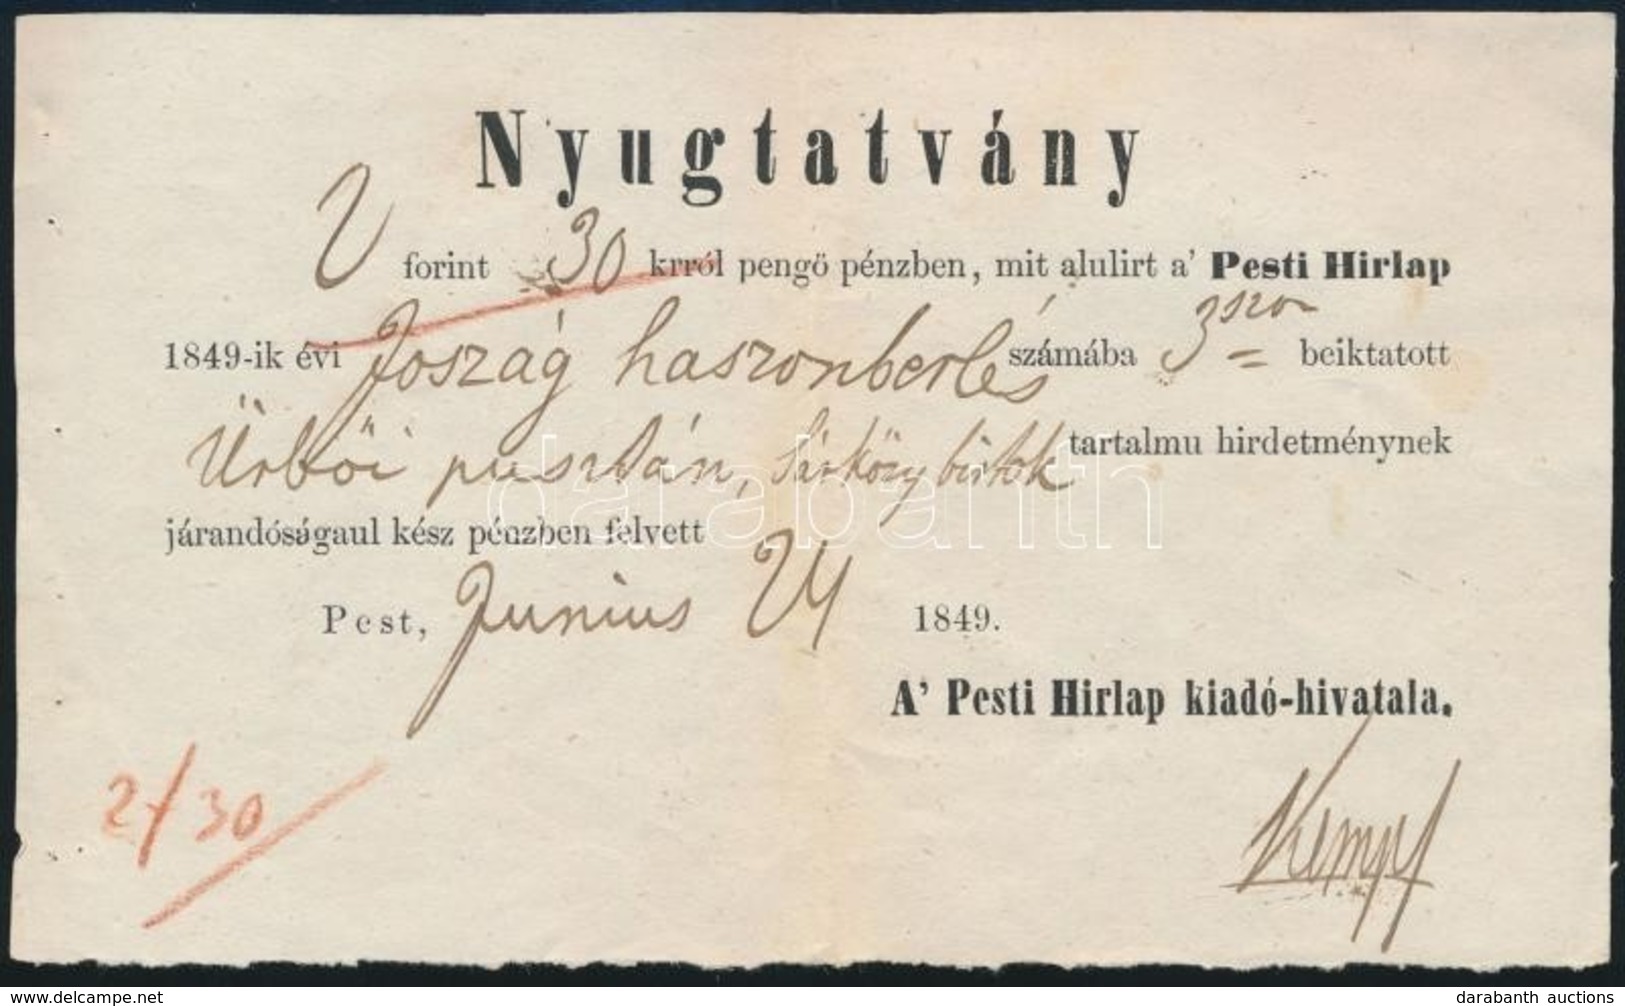 Nyugtatvány
2 forint 30 krról pengö pénzben, mit alulirt a' Pesti Hirlap
1849-ik évi Joszág haszonberlés számába 3szor beiktatott
Ürbői pusztán, Sárközy birtok tartalmu hirdetménynek
járandóságaul kész pénzben felvett
Pest, Junius 24 1849.
A' Pesti Hirlap kiadó-hivatala.
Kempf
2/30
darabanth
darabanth auctions